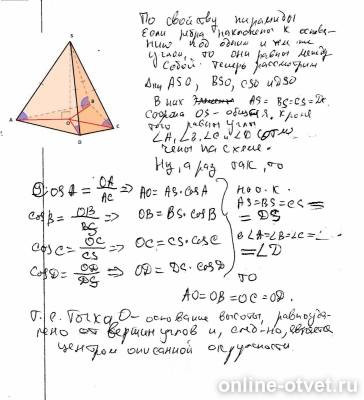 По свойству пирамиды
Если ребра наклонены к основа-
нию под одним и тем же
углом, то они равны между
собой. Теперь рассмотрим
ASO, BSO, CSO и DSO
В них AS=BS=CS=DS.
сторона OS - общая, кроме
того равны углы
∠A, ∠B, ∠C и ∠D отме-
чены на схеме.
Ну, а раз так, то
S
A
B
C
D
O
cos A = OA/AC ⇒ AO = AS·cos A
cos B = OB/BS ⇒ OB = BS·cos B
cos C = OC/CS ⇒ OC = CS·cos C
cos D = OD/DS ⇒ OD = DS·cos D
но т.к.
AS=BS=CS=
=DS
∠A=∠B=∠C=
=∠D
то
AO=OB=OC=OD.
Т.е. точка O - основание высоты, равноуда-
лено от вершин углов и, след-но, является
центром описанной окружности
online-otvet.ru